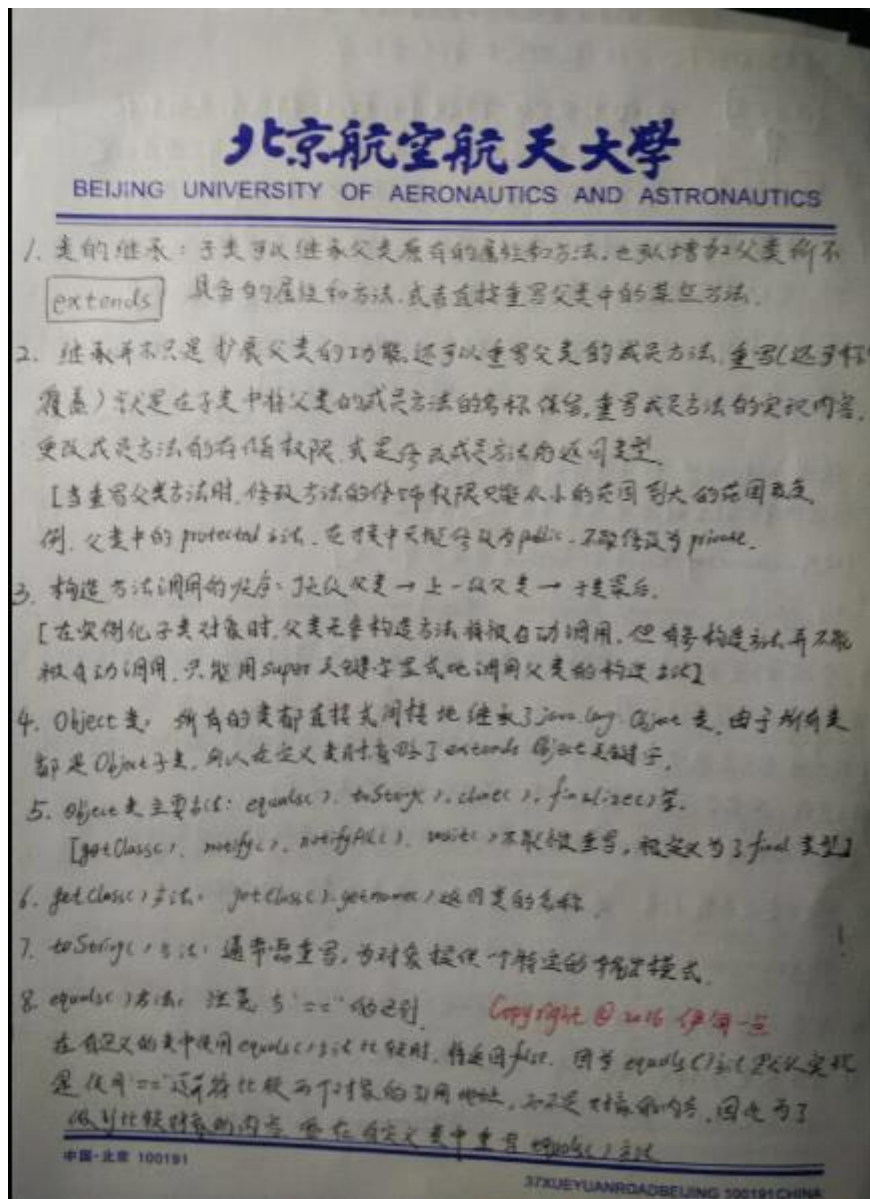 北京航空航天大學
BEIJING UNIVERSITY OF AERONAUTICS AND ASTRONAUTICS
1. 类的继承：子类可以继承父类原有的属性和方法，也可以增加父类所不
extends 具备的属性和方法，或者直接重写父类中的某些方法.
2. 继承并不只是扩展父类的功能，还可以重写父类的成员方法. 重写(还可称
覆盖)就是在子类中将父类的成员方法的名称保留，重写成员方法的实现内容，
更改成员方法的存储权限，或是修改成员方法的返回类型.
[当重写父类方法时，修改方法的修饰权限只能从小的范围到大的范围改变
例. 父类中的protected方法，在子类中只能修改为public，不能修改为private.
3. 构造方法调用的顺序：顶级父类→上一级父类→子类最后.
[在实例化子类对象时，父类无参构造方法将被自动调用，但有参构造方法并不能
被自动调用，只能用super关键字显式地调用父类的构造方法]
4. Object类：所有的类都直接或间接地继承了java.lang.Object类，由于所有类
都是Object子类，所以在定义类时省略了extends Object关键字.
5. Object类主要方法：equals()、toString()、clone()、finalize()等.
[getClass()、notify()、notifyAll()、wait()不能被重写，被定义为了final类型]
6. getClass()方法：getClass().getname()返回类的名称.
7. toString()方法：通常需重写，为对象提供一个特定的输出模式.
8. equals()方法：注意与"=="的区别.
Copyright @ 2016 伊甸一点
在自定义的类中使用equals()方法比较时，将返回false. 因为equals()方法默认实现
是使用"=="运算符比较两个对象的引用地址，而不是对象的内容，因此为了
做到比较对象的内容，要在自定义类中重写equals()方法
中国-北京 100191
37XUEYUANROADBEIJING 100191CHINA